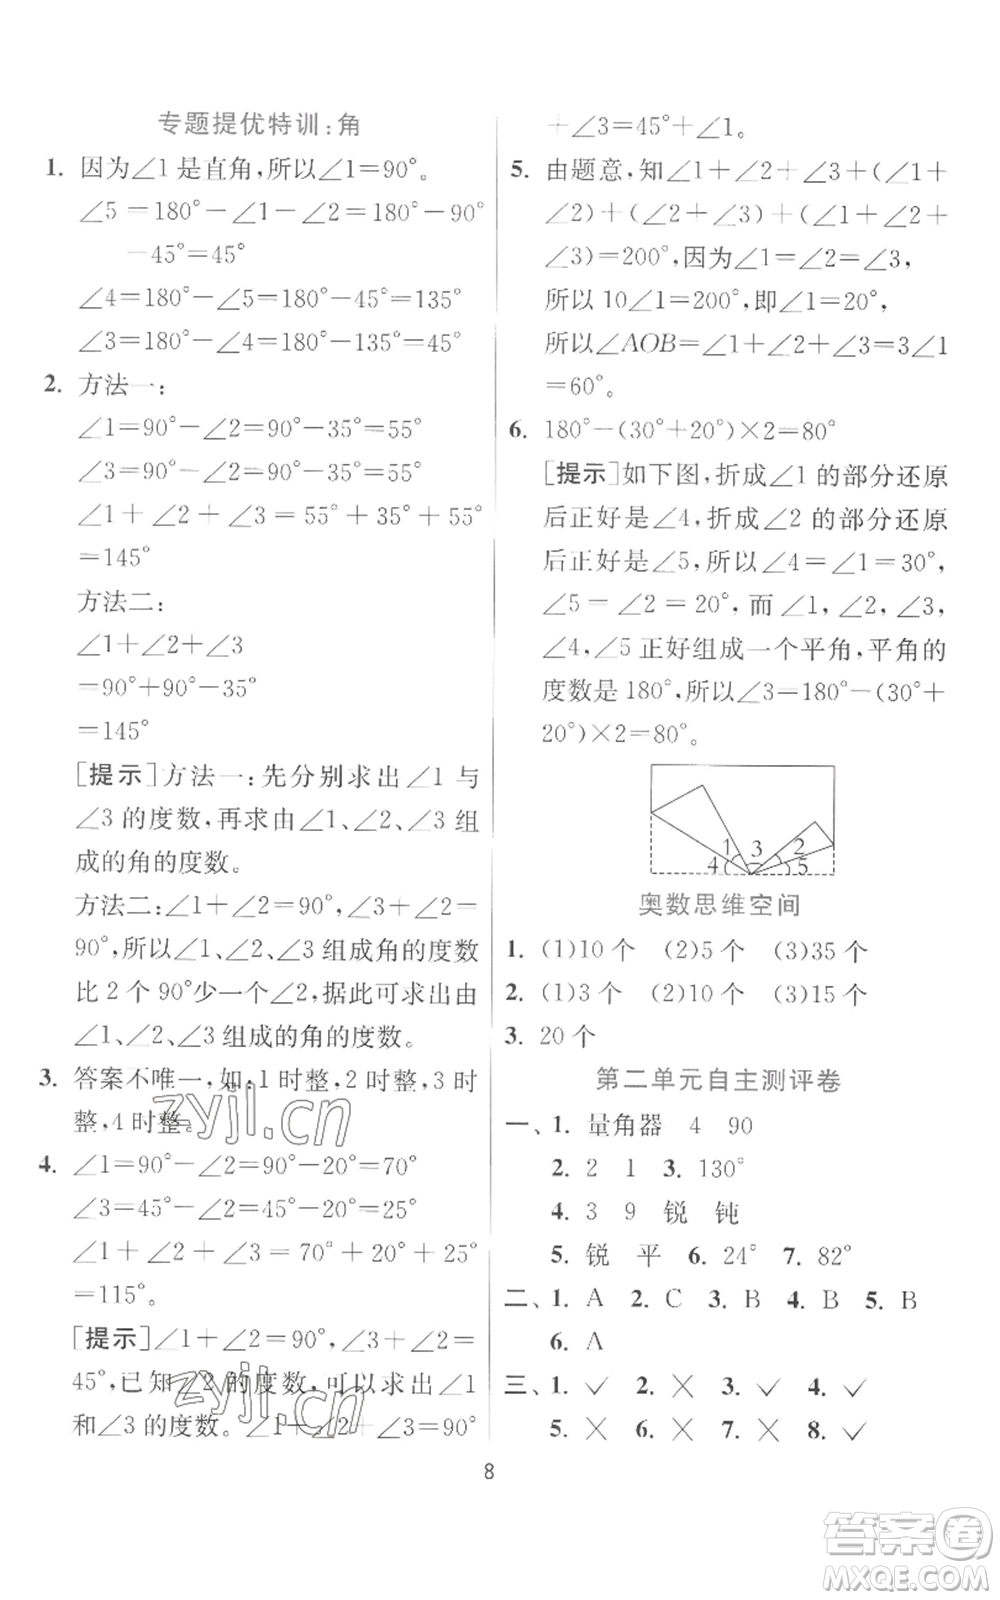 专题提优特训:角
1. 因为∠1是直角,所以∠1=90°。
∠5=180°-∠1-∠2=180°-90°
-45°=45°
∠4=180°-∠5=180°-45°=135°
∠3=180°-∠4=180°-135°=45°
2. 方法一:
∠1=90°-∠2=90°-35°=55°
∠3=90°-∠2=90°-35°=55°
∠1+∠2+∠3=55°+35°+55°
=145°
方法二:
∠1+∠2+∠3
=90°+90°-35°
=145°
[提示]方法一:先分别求出∠1与
∠3的度数,再求由∠1、∠2、∠3组
成的角的度数。
方法二:∠1+∠2=90°,∠3+∠2=
90°,所以∠1、∠2、∠3组成角的度数
比2个90°少一个∠2,据此可求出由
∠1、∠2、∠3组成的角的度数。
3. 答案不唯一,如:1时整,2时整,3时
整,4时整。
4. ∠1=90°-∠2=90°-20°=70°
∠3=45°-∠2=45°-20°=25°
∠1+∠2+∠3=70°+20°+25°
=115°。
[提示]∠1+∠2=90°,∠3+∠2=
45°,已知∠2的度数,可以求出∠1
和∠3的度数。∠1+∠2+∠3=90°
+∠3=45°+∠1。
5. 由题意,知∠1+∠2+∠3+(∠1+
∠2)+(∠2+∠3)+(∠1+∠2+
∠3)=200°,因为∠1=∠2=∠3,
所以10∠1=200°,即∠1=20°,
所以∠AOB=∠1+∠2+∠3=3∠1
=60°。
6. 180°-(30°+20°)×2=80°
[提示]如下图,折成∠1的部分还原
后正好是∠4,折成∠2的部分还原
后正好是∠5,所以∠4=∠1=30°,
∠5=∠2=20°,而∠1,∠2,∠3,
∠4,∠5正好组成一个平角,平角的
度数是180°,所以∠3=180°-(30°+
20°)×2=80°。
1 3 2
4 5
奥数思维空间
1. (1)10个 (2)5个 (3)35个
2. (1)3个 (2)10个 (3)15个
3. 20个
第二单元自主测评卷
一、1. 量角器 4 90
2. 2 1 3. 130°
4. 3 9 锐 钝
5. 锐 平 6. 24° 7. 82°
二、1. A 2. C 3. B 4. B 5. B
6. A
三、1. ✓ 2. ✕ 3. ✓ 4. ✓
5. ✕ 6. ✕ 7. ✕ 8. ✓
8
zyjl.cn
zyjl.cn
答案圈
MXQE.COM